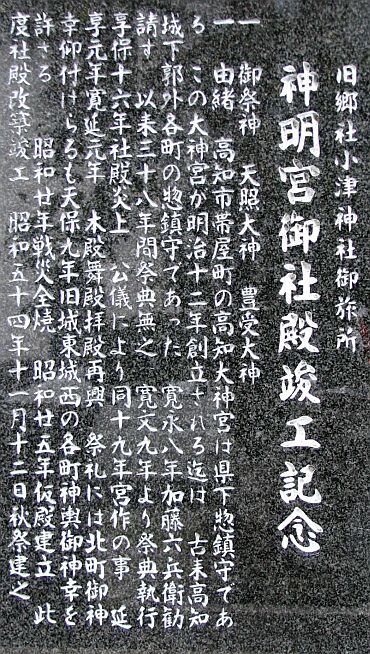 旧郷社小津神社御旅所
神明宮御社殿竣工記念
一 御祭神 天照大神 豊受大神
一 由緒 高知市帯屋町の高知大神宮は県下惣鎮守であ
る この大神宮が明治十二年創立される迄は 古来高知
城下郭外各町の惣鎮守であった 寛永八年加藤六兵衛勧
請す 以来三十八年間祭典無之 寛文九年より祭典執行
享保十六年社殿炎上 公儀により同十九年宮作の事 延
享元年寛延元年 本殿舞殿拝殿再興 祭礼には北町御神
幸仰付けらるも天保九年旧城東城西の各町神輿御神幸を
許さる 昭和廿年戦災全焼 昭和廿五年仮殿建立 此
度社殿改築竣工 昭和五十四年十一月十二日秋祭建之